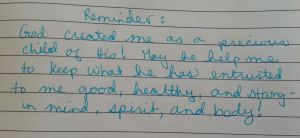 Reminder:
God created me as a precious
child of His! May he help me
to keep what he has entrusted
to me good, healthy, and strong-
in mind, spirit, and body!